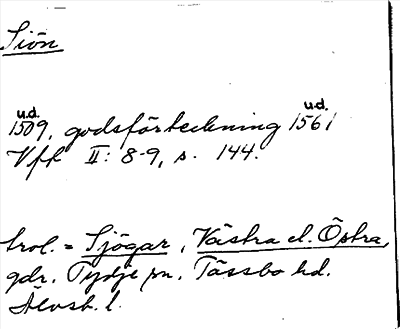 Siön
u.d. u.d.
1509, godsförteckning 1561
Vfh II: 8-9, s. 144.
trol. = Sjögar, Västra el. Östra,
gdr. Tydje sn. Tössbo hd.
Älvsb. l.